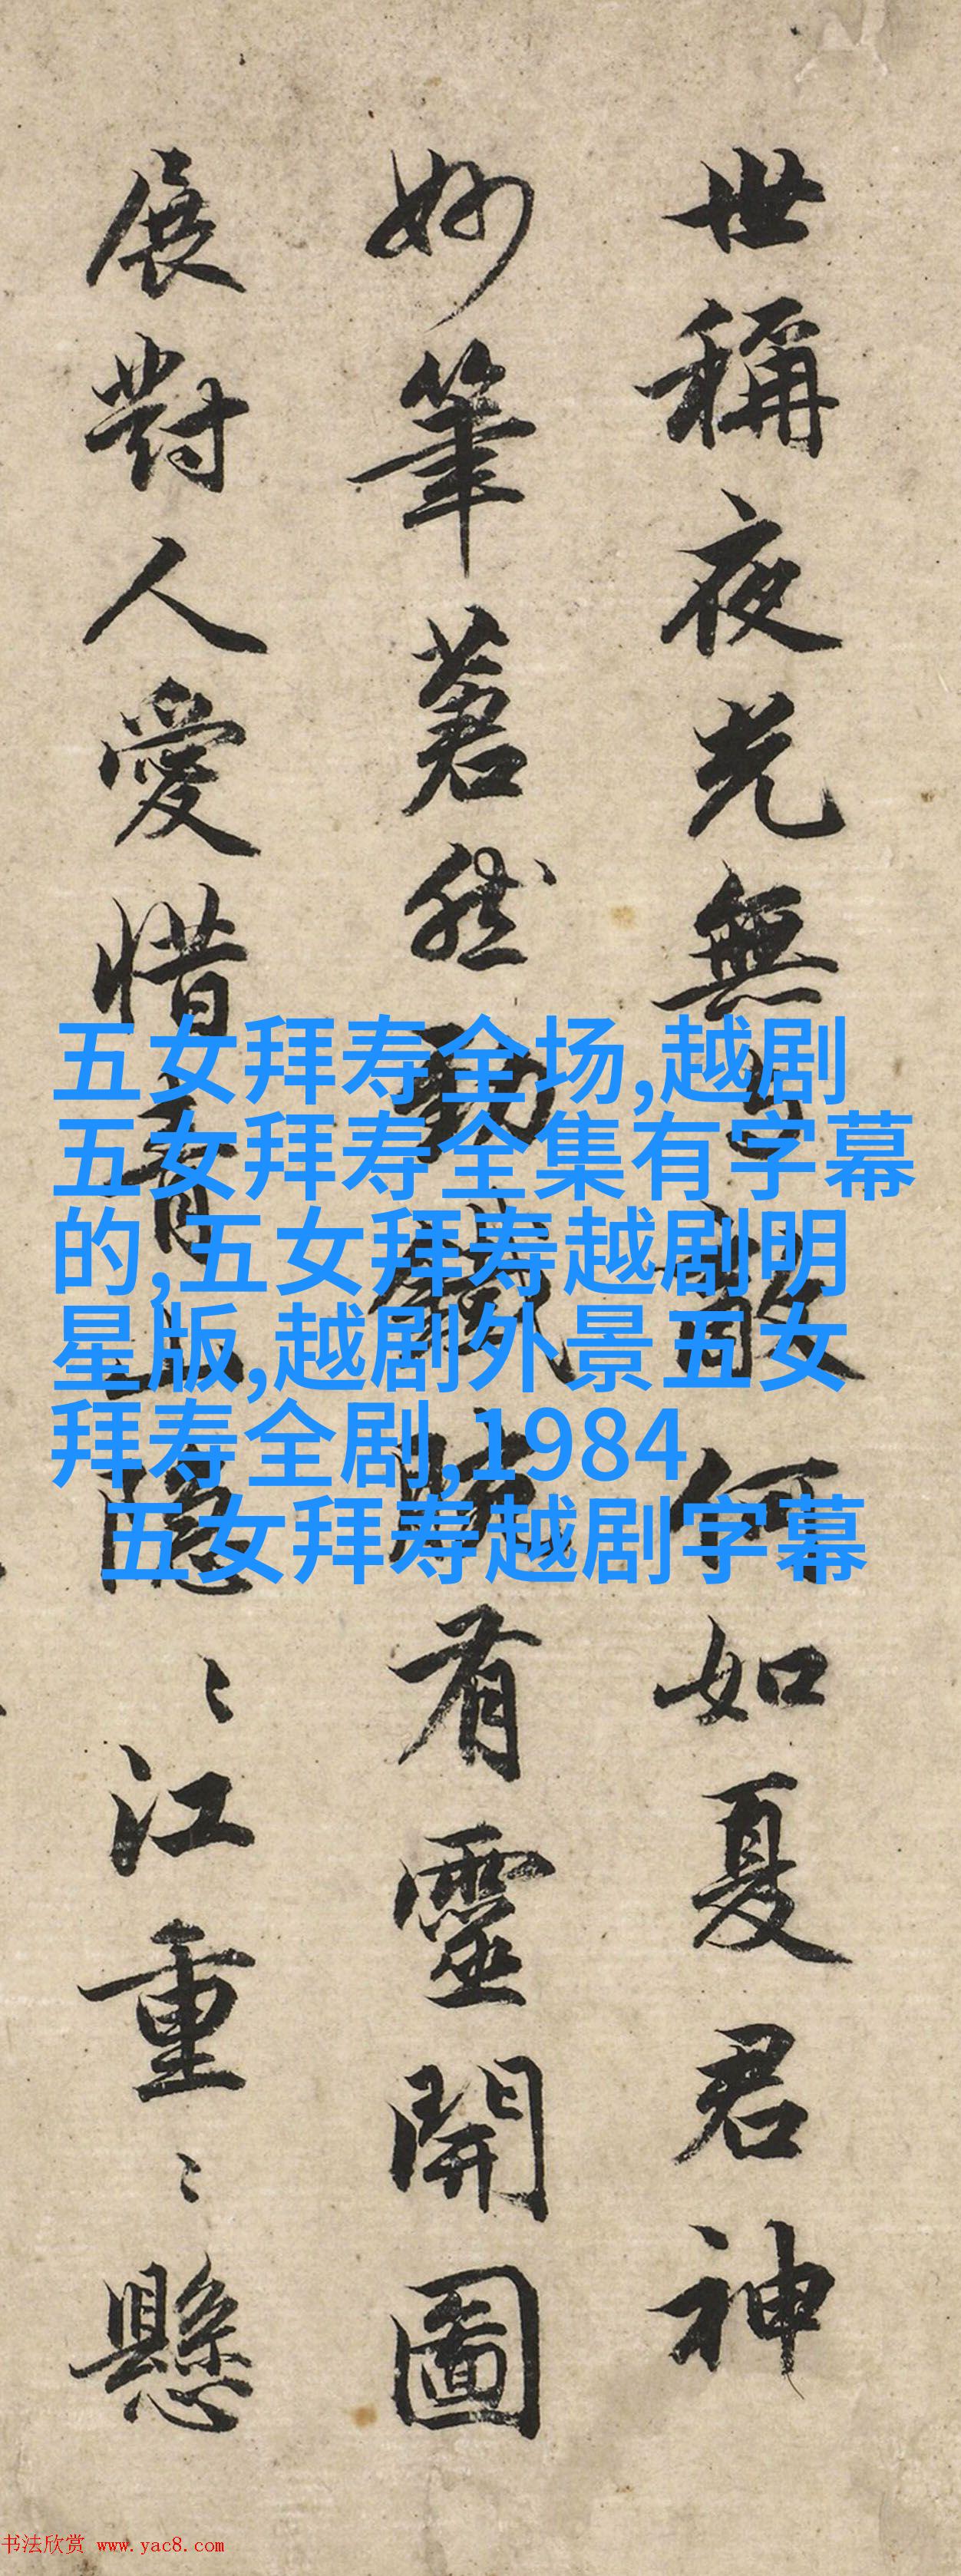 世稱夜光無与敵何如夏君神
妙筆蒼然勁鐵腕有靈開圖
展對人愛惜青山隱〻江重〻懸
五女拜寿全场,越剧
五女拜寿全集有字幕
的,五女拜寿越剧明
星版,越剧外景五女
拜寿全剧,1984
五女拜寿越剧字幕
书法欣赏 www.yac8.com